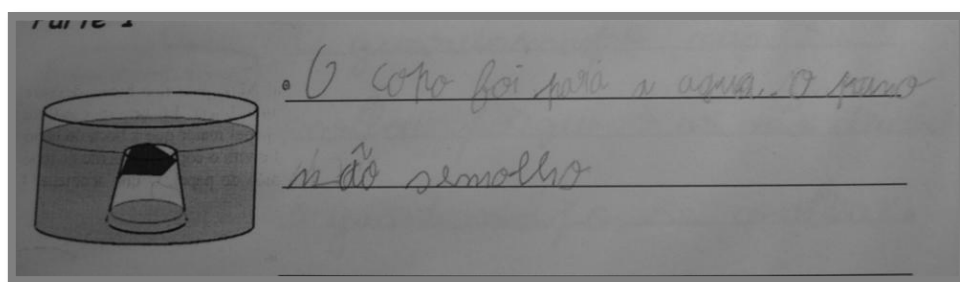 Parte 1
O copo foi para a agua. O pano
não semolho